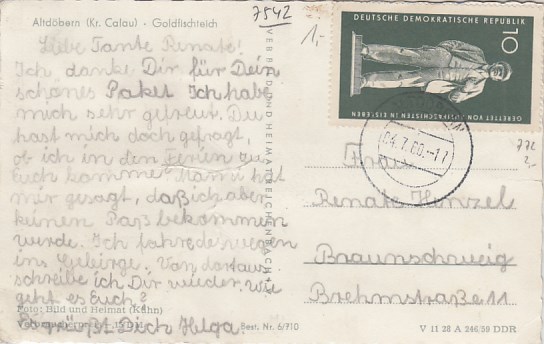 Altdöbern (Kr. Calau) · Goldfischteich
7542
1,-
Liebe Tante Renate!
Ich danke Dir für Dein
schönes Paket. Ich habe
mich sehr gefreut. Du
hast mich doch gefragt,
ob ich in den Ferien zu
Euch komme. Mammi hat
mir gesagt, daß ich aber
keinen Paß bekommen
werde. Ich fahre deswegen
ins Gebirge. Von dort aus
schreibe ich Dir wieder. Wie
geht es Euch?
Es grüßt Dich Helga.
Foto: Bild und Heimat (Kühn)
Best. Nr. 6/710
VERLAG BILD UND HEIMAT REICHENBACH
DEUTSCHE DEMOKRATISCHE REPUBLIK
10
GERETTET VON ANTIFASCHISTEN IN EISLEBEN
04.7.60.-17
772
2,-
Frau
Renate Hinzel
Braunschweig
Brehmstraße 11
V 11 28 A 246/59 DDR